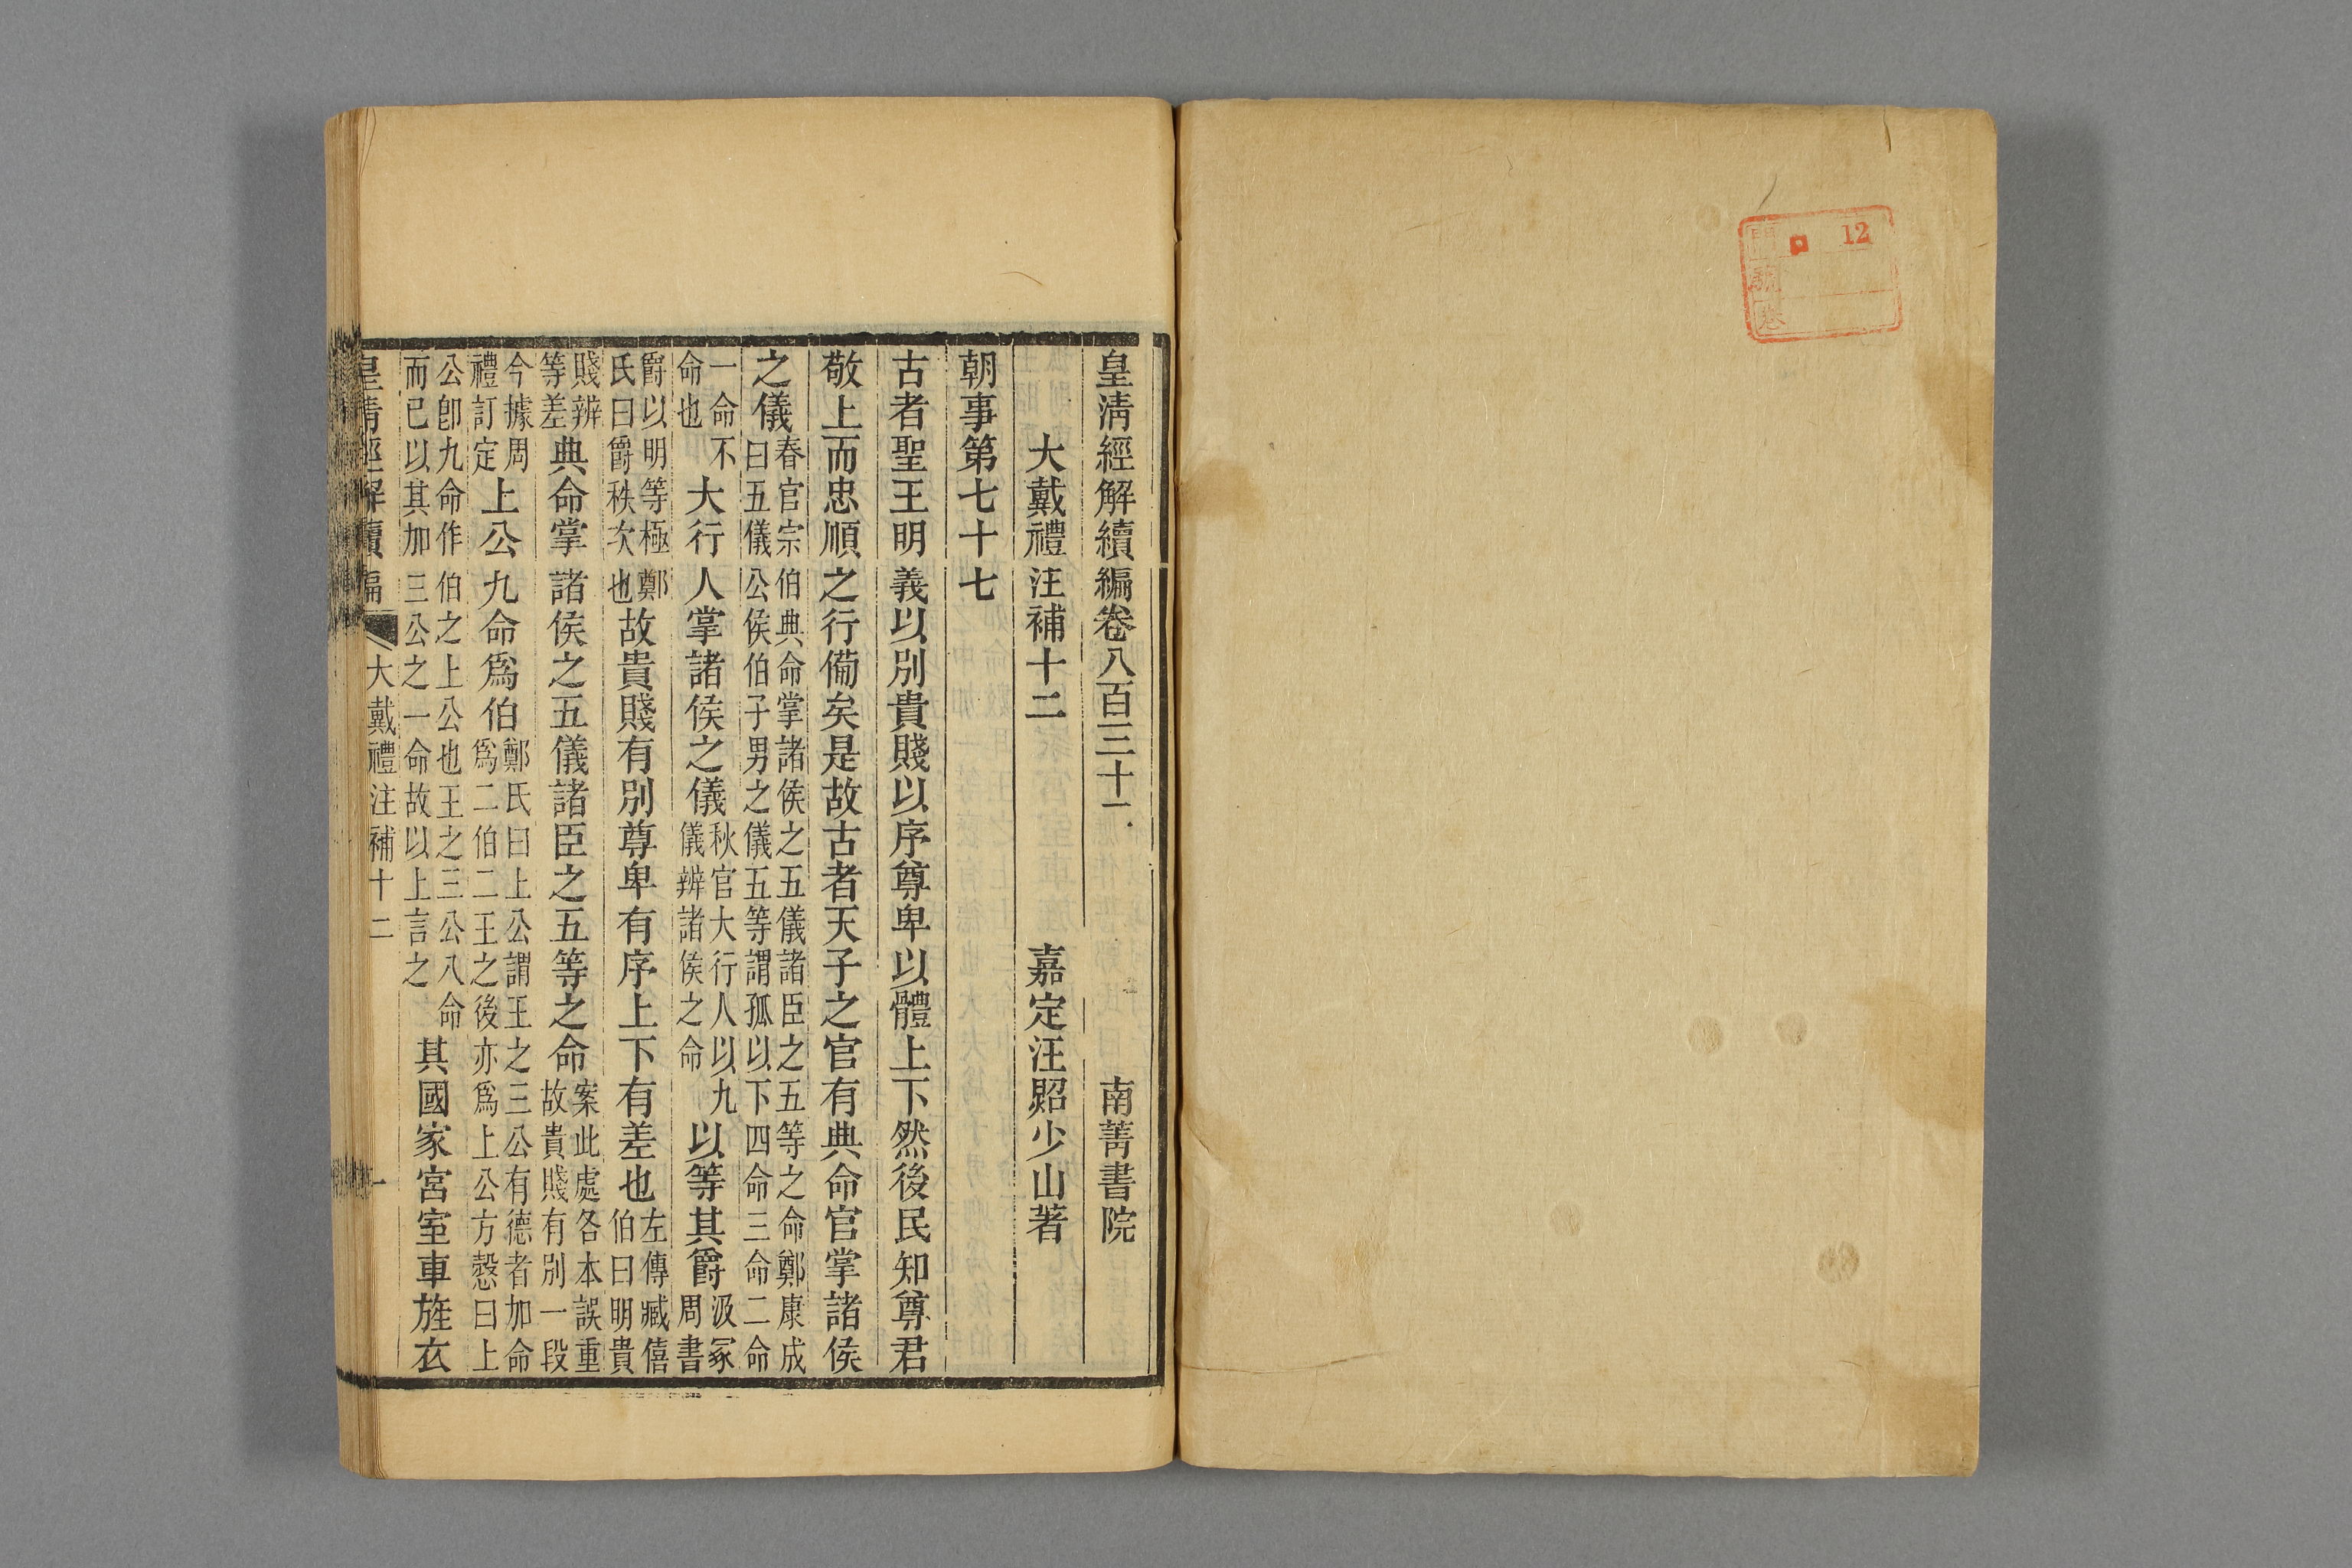 12
號
卷
皇淸經解續編卷八百三十一
南菁書院
大戴禮注補十二
嘉定汪照少山著
朝事第七十七
古者聖王明義以別貴賤以序尊卑以體上下然後民知尊君
敬上而忠順之行備矣是故古者天子之官有典命官掌諸侯
之儀春官宗伯典命掌諸侯之五儀諸臣之五等之命鄭康成
曰五儀公侯伯子男之儀五等謂孤以下四命三命二命
一命不
命也大行人掌諸侯之儀秋官大行人以九
儀辨諸侯之命以等其爵汲冢
周書
爵以明等極鄭
氏曰爵秩次也故貴賤有別尊卑有序上下有差也左傳臧僖
伯曰明貴
賤辨
等差典命掌諸侯之五儀諸臣之五等之命案此處各本誤重
故貴賤有別一段
今據周
禮訂定上公九命爲伯鄭氏曰上公謂王之三公有德者加命
爲二伯二王之後亦爲上公方慤曰上
公卽九命作伯之上公也王之三公八命
而已以其加三公之一命故以上言之其國家宮室車旌衣
皇淸經解續編
大戴禮注補十二
一